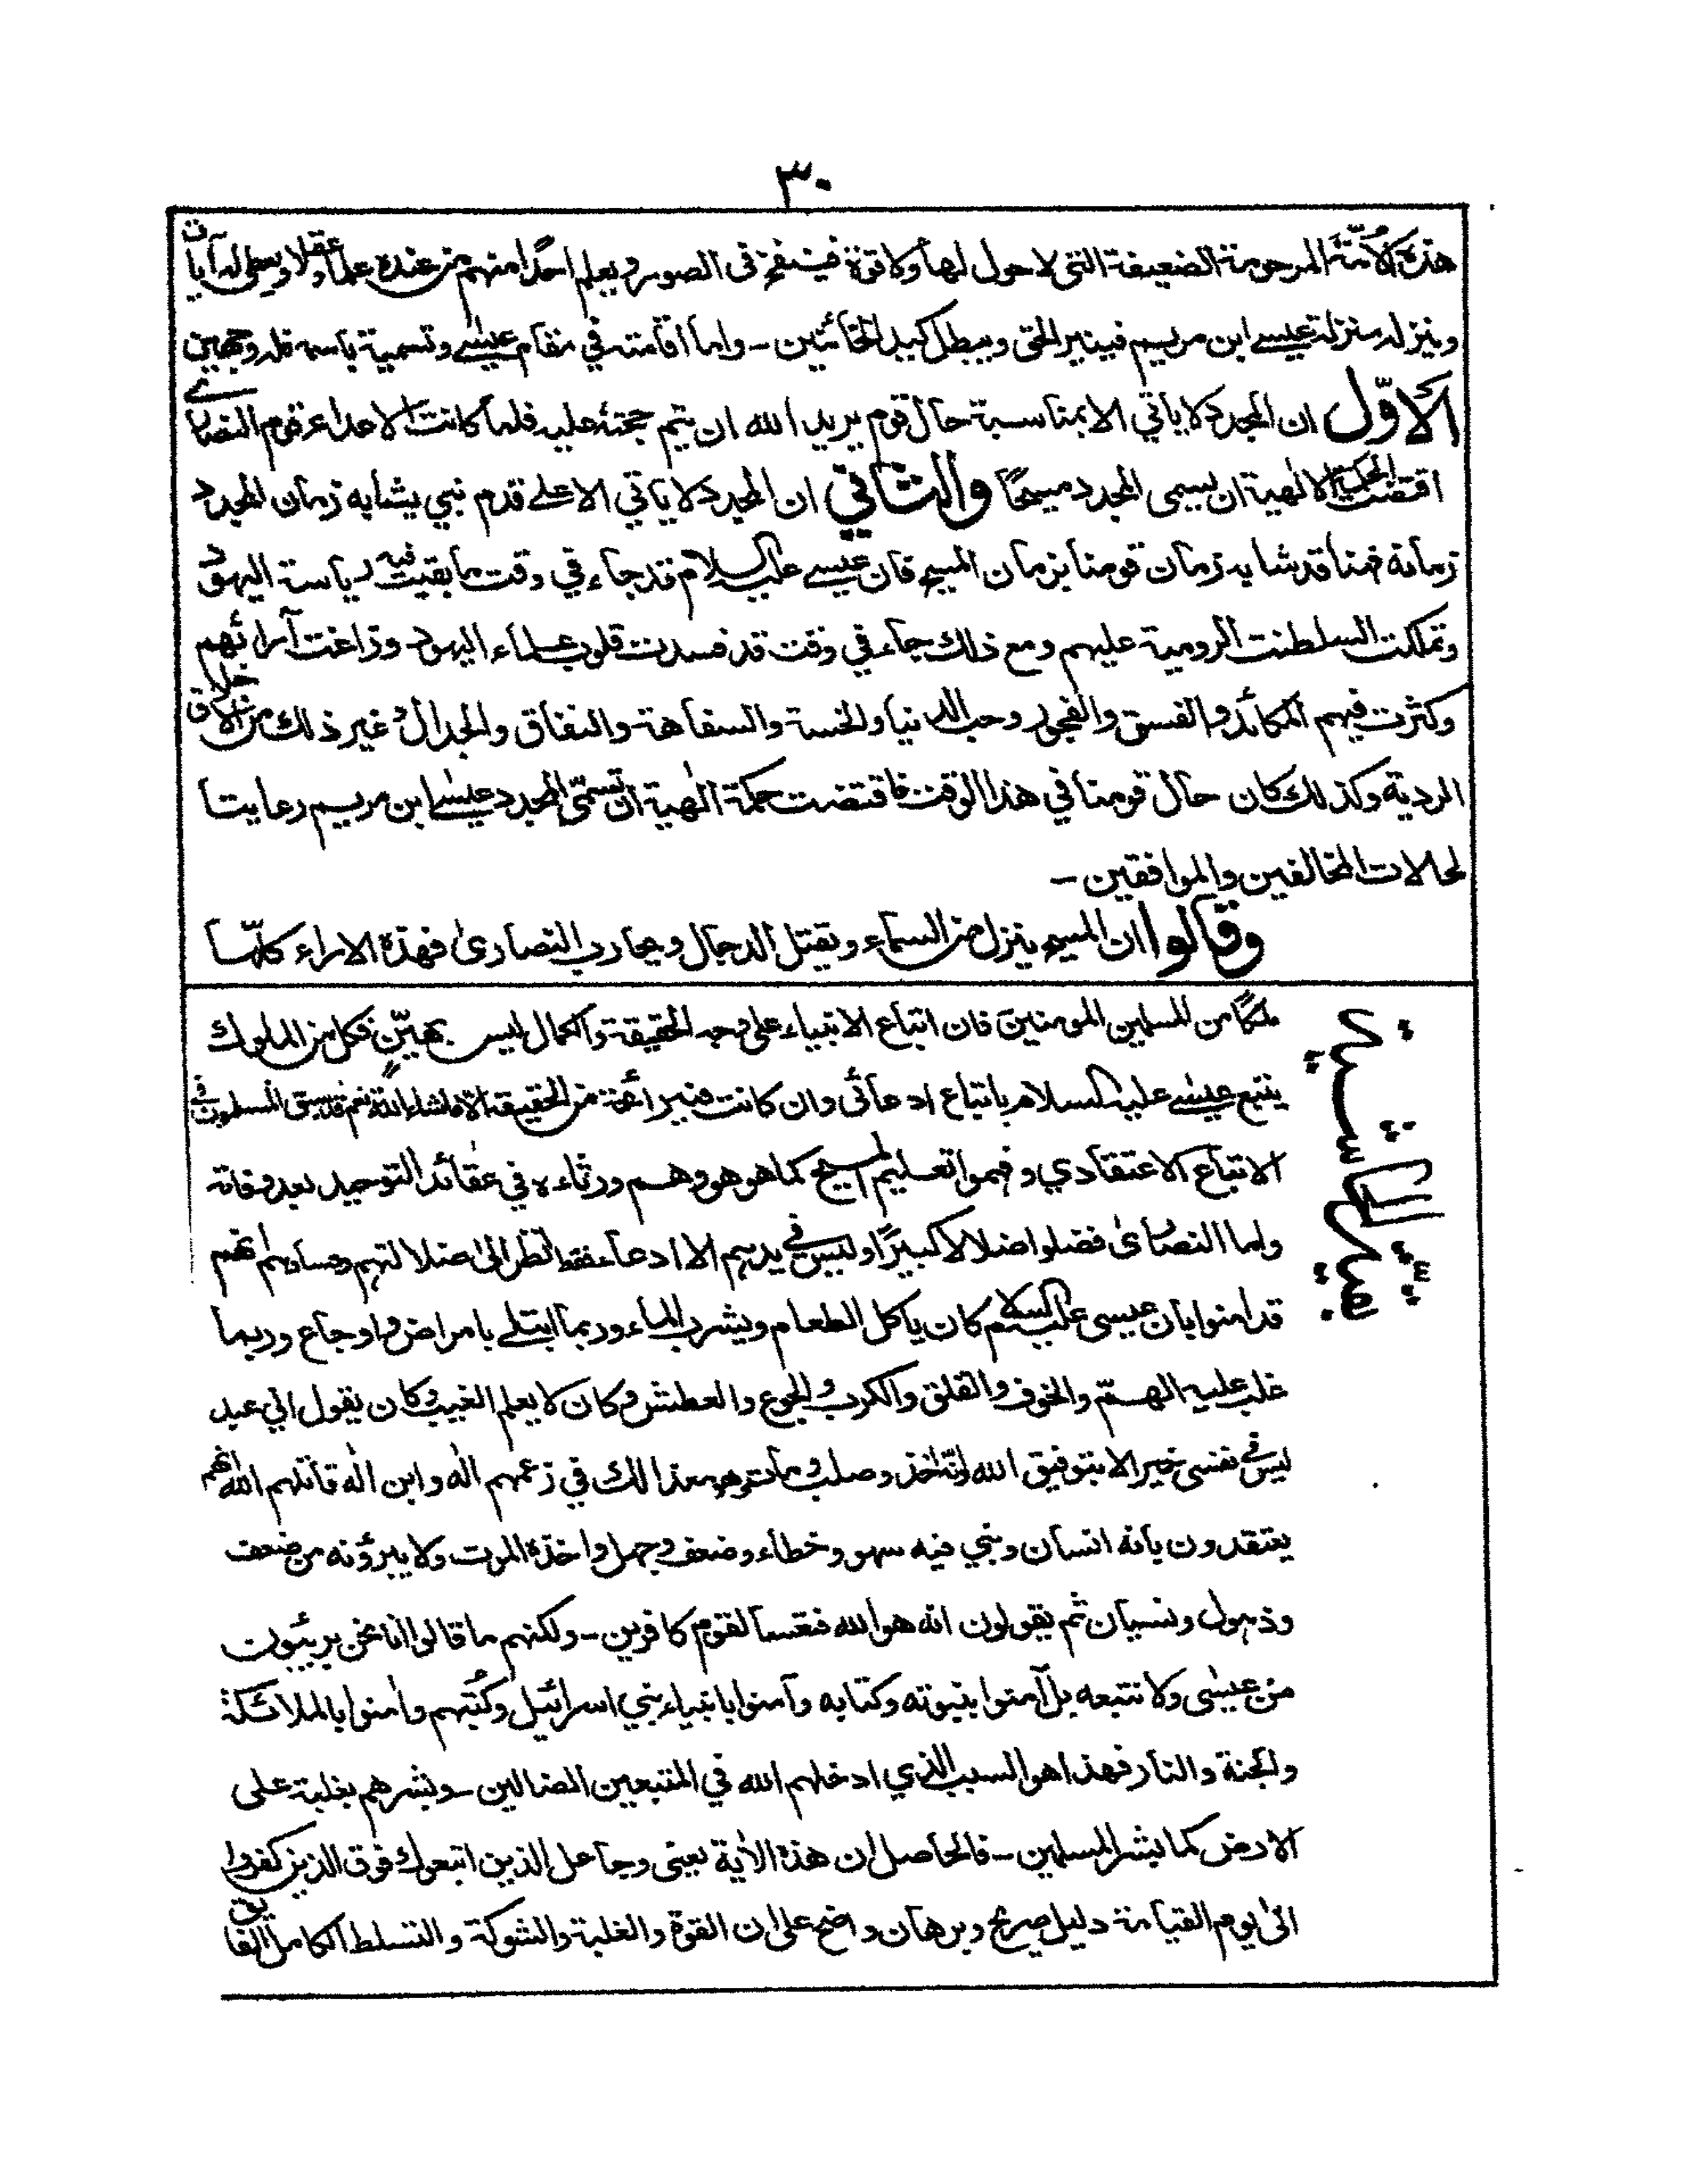 ٣٠
هذه الأمّة المرحومة الضعيفة التي لا حول لها ولا قوة فينفخ فى الصور ويعلم احدًا منهم من عنده علمًا وعقلا ويعطى له آيات
وينزله منزلة عيسے ابن مريم فينير الحق ويبطل كيد الخائنين - واما اقامته في مقام عيسٰے وتسمية باسمه فله وجهين
الأوّل ان المجدد لا ياتي الا بمناسبة حال قوم يريد الله ان يتم حجته عليه فلما كانت الاعداء قوم النصارے
اقتضت الحكمة الالهية ان يسمى المجدد مسيحًا والثاني ان المجدد لا ياتي الا علے قدم نبي يشابه زمان المجدد
زمانه فهنا قد شابه زمان قومنا بزمان المسيح فان عيسے عليه السلام قد جاء في وقت ما بقيت فيه رياسة اليهود
وتملكت السلطنت الرومية عليهم ومع ذلك جاء في وقت قد فسدت قلوب علماء اليهود وزاغت آرائهم
وكثرت فيهم المكائد والفسق والفجور وحب الدنيا والخسة والسفاهة والنفاق والجدال وغير ذلك من الاخلاق
الردية وكذلك كان حال قومنا في هذا الوقت فاقتضت حكمة الٰهية ان تسمّى المجدد عيسٰے ابن مريم رعايتا
لحالات المخالفين والموافقين -
وقالوا ان المسيح ينزل من السماء ويقتل الدجال ويحارب النصارىٰ فهذه الاراء كلّها
ملكًا من المسلمين المومنين فان اتباع الانبياء على وجه الحقيقة والكمال ليس بهيّنٍ فكل من الملوك
يتبع عيسٰے عليه السلام باتباع ادعائى وان كانت فيه رائحة من الحقيقة الا ما شاء الله نعم قد سبق المسلمون في
الاتباع الاعتقادي وفهموا تعليم المسيح كما هو هو وهم ورثاءه في عقائد التوحيد بعد وفاته
واما النصارىٰ فضلوا ضلالا كبيرًا وليس في يدهم الا ادعاء فقط انظر الىٰ ضلالتهم وفسادهم انهم
قد امنوا بان عيسى عليه السلام كان ياكل الطعام ويشرب الماء وربما ابتلے بامراض واوجاع وربما
غلب عليه الهمّ والخوف والقلق والكرب والجوع والعطش وكان لا يعلم الغيب وكان يقول اني عبد
ليس في نفسى خير الا بتوفيق الله وانّه اُخذ وصلب ومات وهو مع ذالك في زعمهم الٰه وابن الٰه قاتلهم الله انهم
يعتقدون بانه انسان ونبي فيه سهو وخطاء وضعف وجهل واخذه الموت ولا يبرؤنه من ضعف
وذهول ونسيان ثم يقولون انه هو الله فتعسا لقوم كافرين - ولكنهم ما قالوا انا نحن بريئون
من عيسٰى ولا نتبعه بل آمنوا بنبوته وكتابه وآمنوا بانبياء بني اسرائيل وكُتُبهم واٰمنوا بالملائكة
والجنة والنار فهذا هو السبب الذي ادخلهم الله في المتبعين الضالين - وبشرهم بغلبة على
الارض كما بشر المسلمين - فالحاصل ان هذه الاٰية يعنى وجاعل الذين اتبعوك فوق الذين كفروا
الىٰ يوم القيامة دليل صريح وبرهان واضح على ان القوة والغلبة والشوكة والتسلط الكامل الفائق